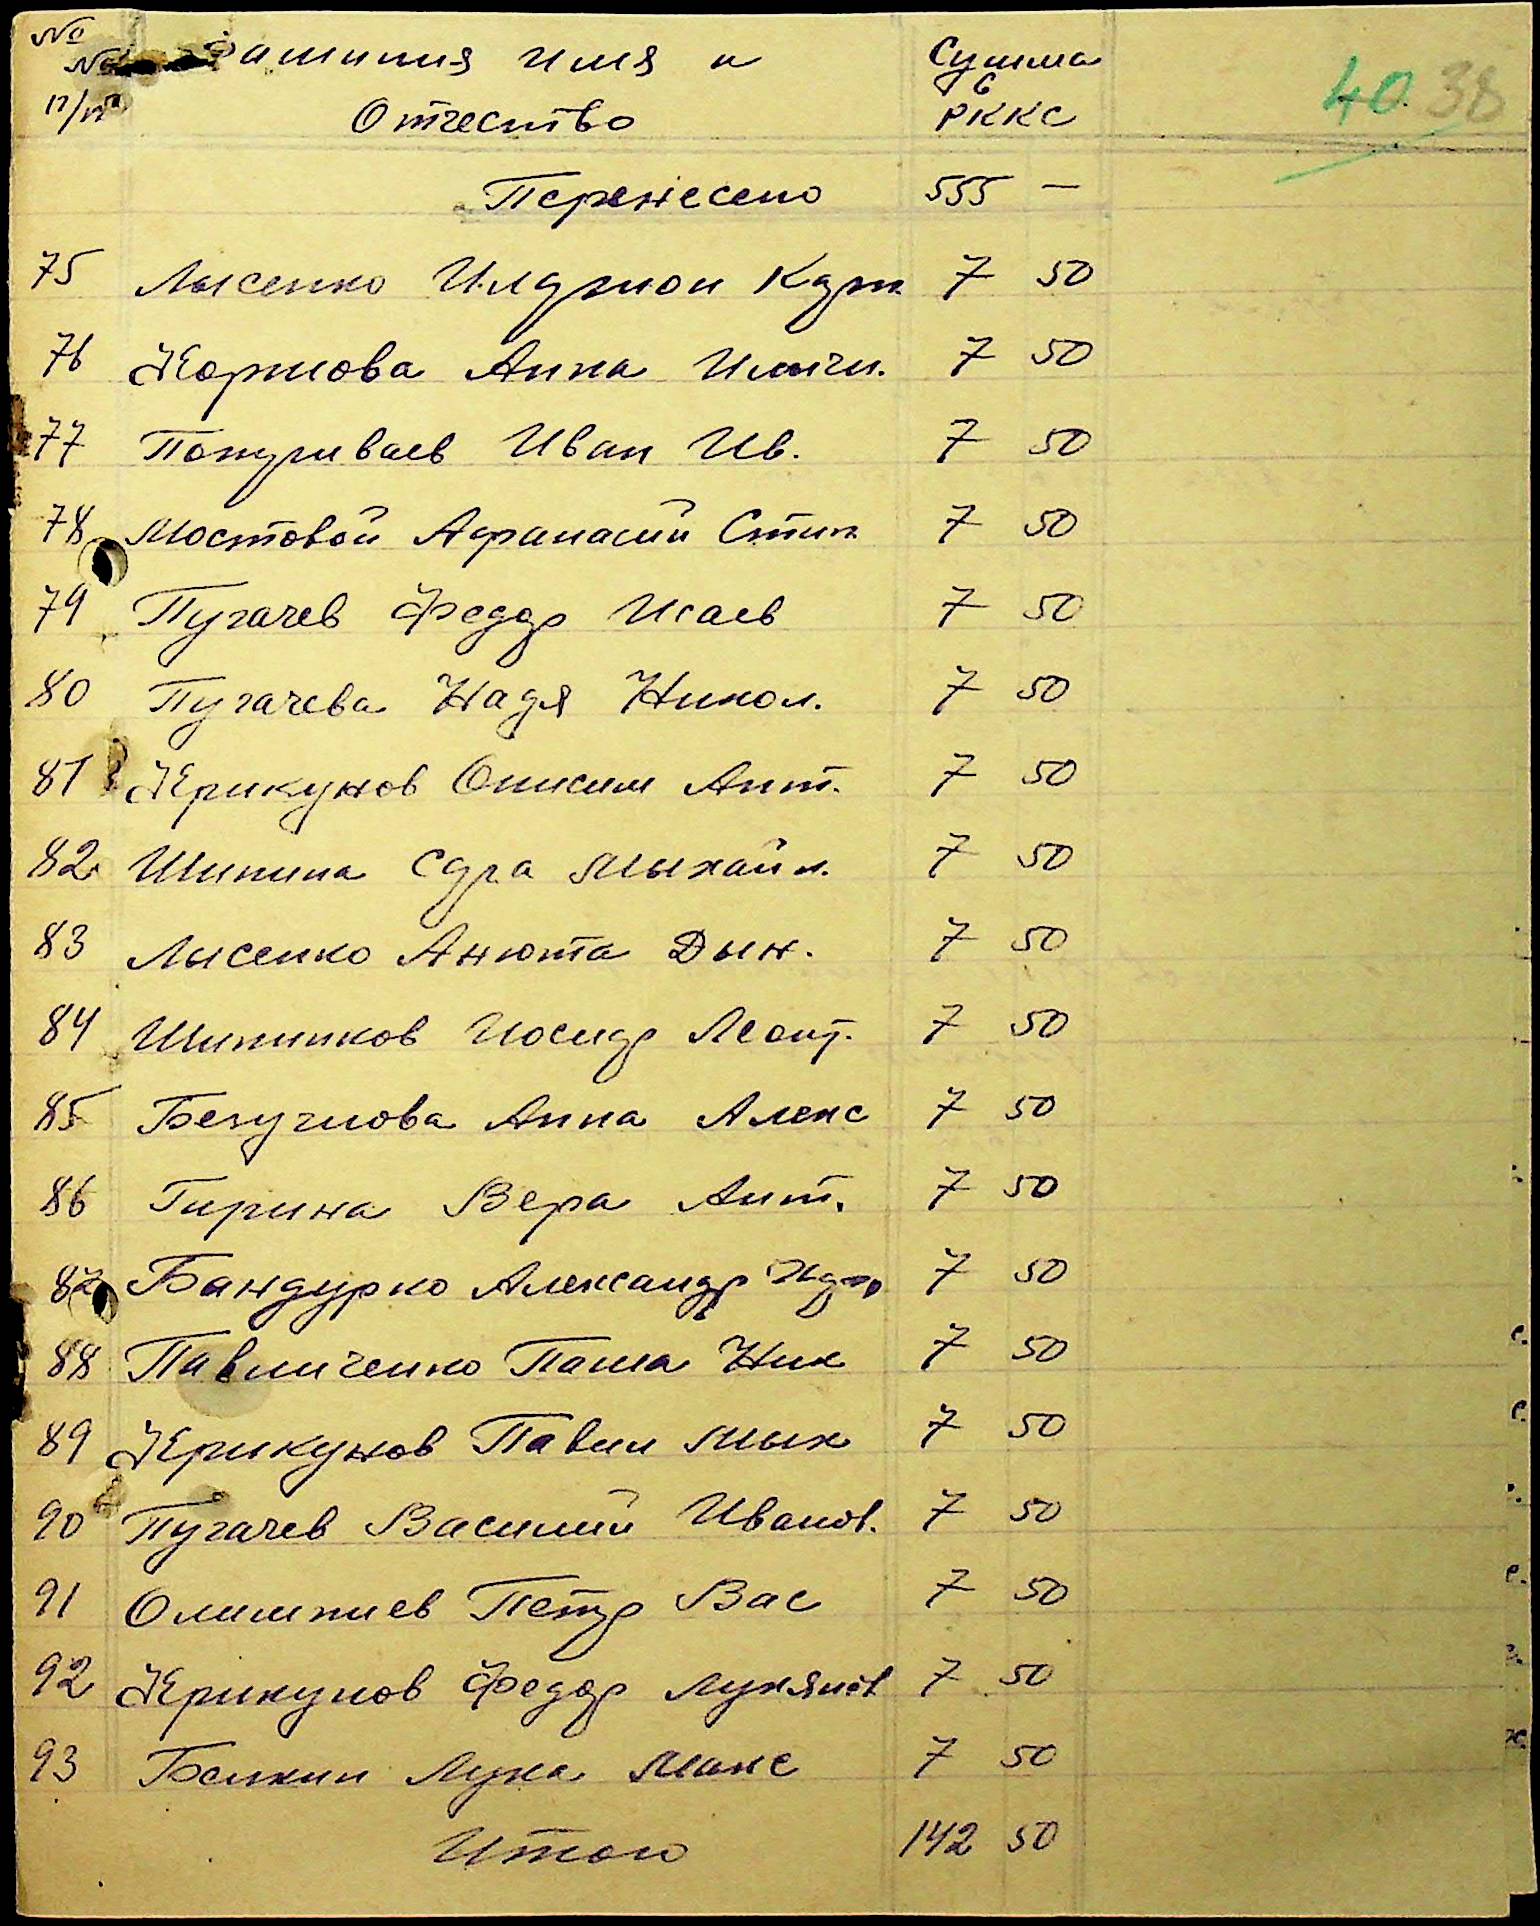 №
№ Фамилия имя и Сумма
п/п Отчество в РККС
40 38
Перенесено 555 —
75 Лысенко Илдрион 7 50
76 Корнова Анна 7 50
77 Пожуриваев Иван Ив. 7 50
78 Мостовой Афранасий Стип 7 50
79 Пугачев Федор Исаев 7 50
80 Пугачева Надя Никол. 7 50
81 Крикунов Онисим Ант. 7 50
82 Шипина Сдра Мыхайл. 7 50
83 Лысенко Анюта Дын. 7 50
84 Шипипков Иосидр Леонт. 7 50
85 Анна Алекс 7 50
86 Гирина Вера Ант. 7 50
87 Бандурко Александр 7 50
88 Павличенко Паша Ник 7 50
89 Крикунов Павел Мых 7 50
90 Пугачев Василий Иванов. 7 50
91 Олимпиев Петр Вас 7 50
92 Крикунов Федор Лукянов 7 50
93 Белкин Лука Макс 7 50
Итого 142 50